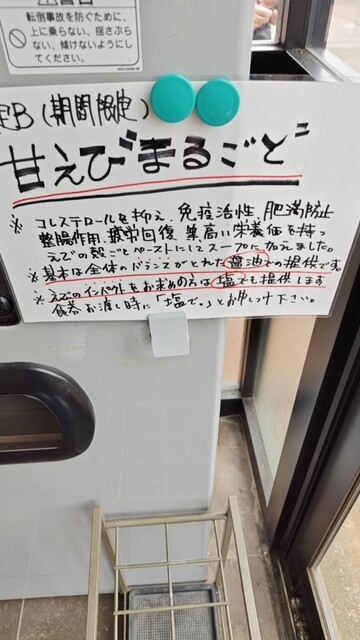 転倒事故を防ぐために、
上に乗らない、揺さぶら
ない、傾けないようにし
てください。
限定B(期間限定)
甘えび"まるごと"
※ コレステロールを抑え、免疫活性、肥満防止
整腸作用、疲労回復 等高い栄養価を持つ
えびの殻ごとペーストにしてスープに加えました。
※ 基本は全体のバランスがとれた醤油での提供です。
※ えびのインパクトをお求めの方は塩でも提供します
食券お渡し時に「塩で。」とお申しつけ下さい。